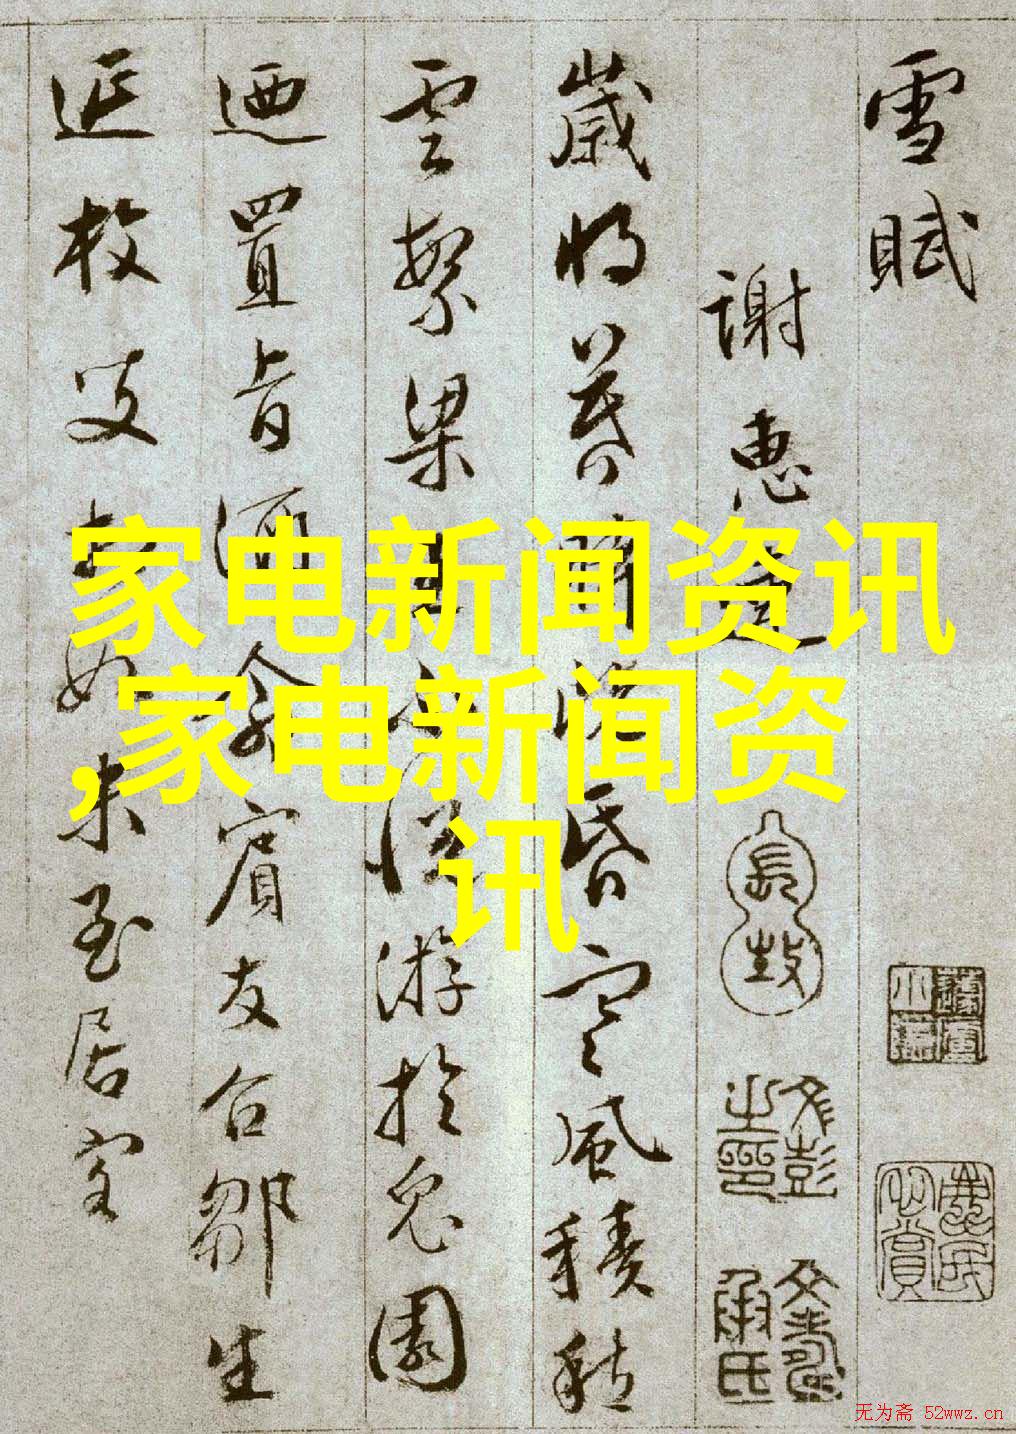 雪賦
謝惠連
歲将暮時既昏寒風積
雲繁梁王不悅游於兔園
迺置旨酒命賓友召鄒生
延枚叟相如末至居客
家电新闻资讯
,家电新闻资
讯
文彭之印
文壽承氏
无为斋 52wwz.cn